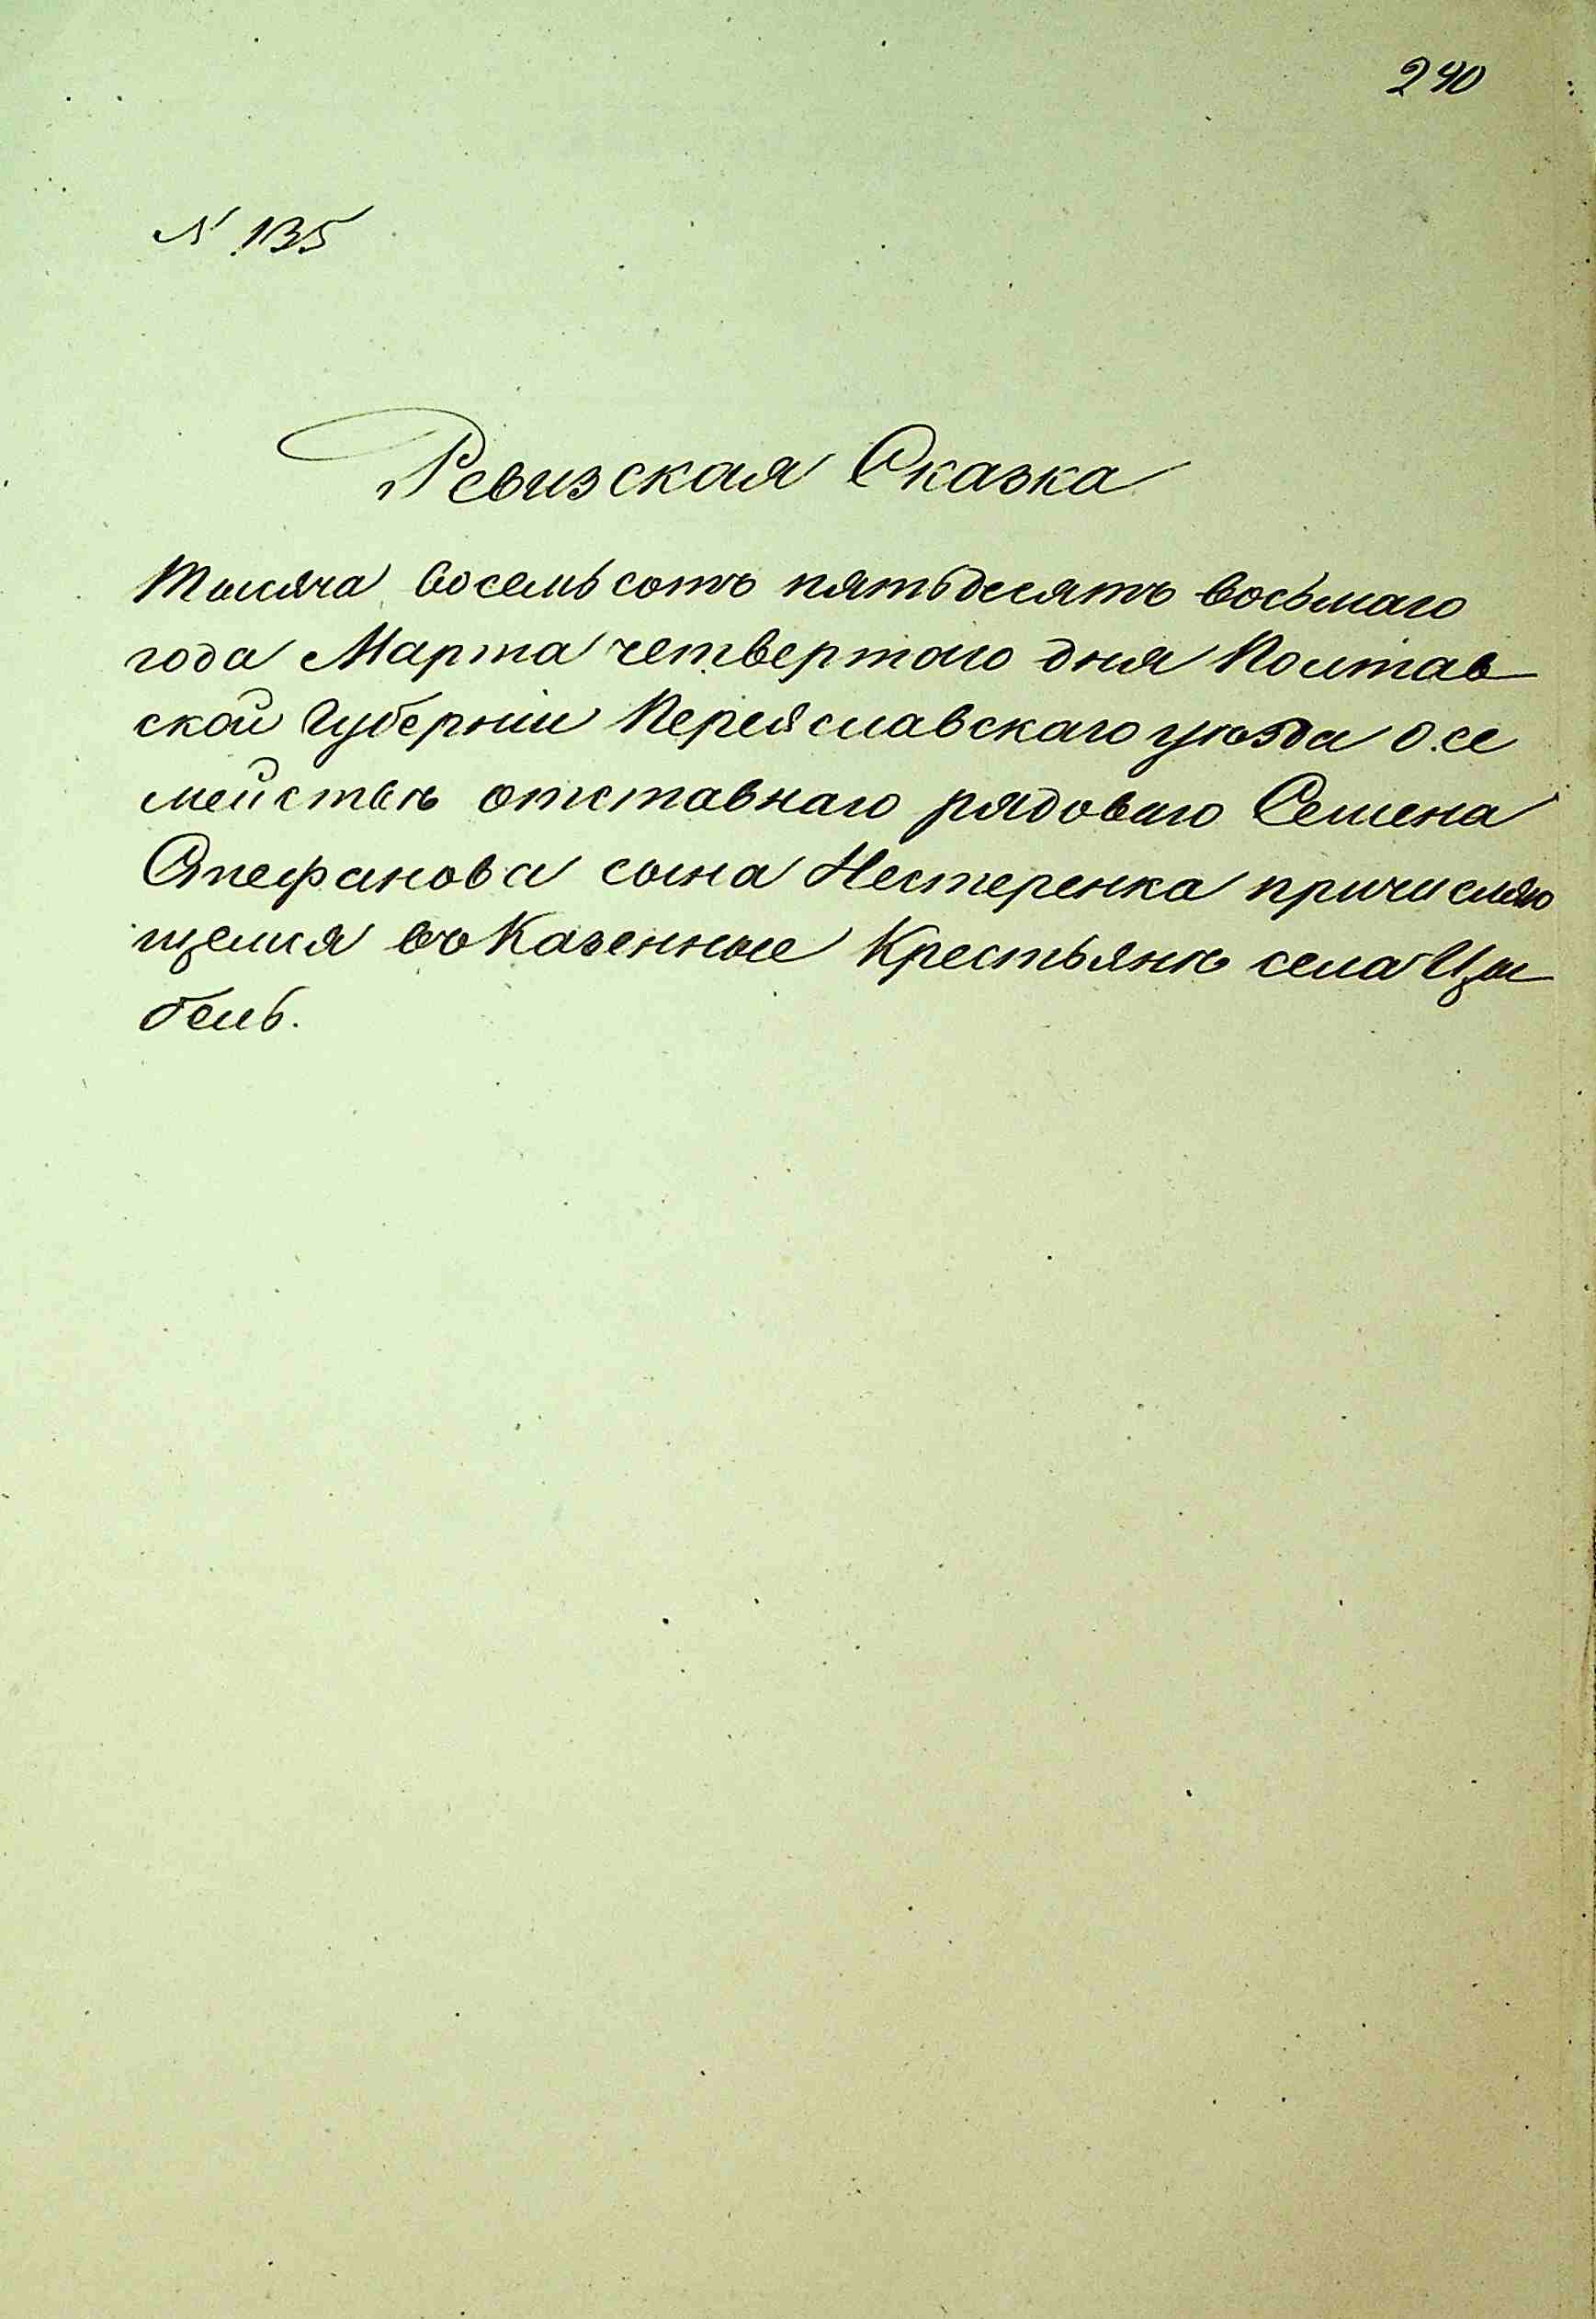 240
№ 135
Ревизская Сказка
Тысяча восемьсотъ пятьдесятъ восьмаго
года Марта четвертого дня Полтав
ской Губерніи Переяславскаго уѣзда о се
мействѣ отставнаго рядоваго Семена
Стефанова сына Нестеренка причисляю
щемся въ Казенные Крестьянѣ села Цы
бель.